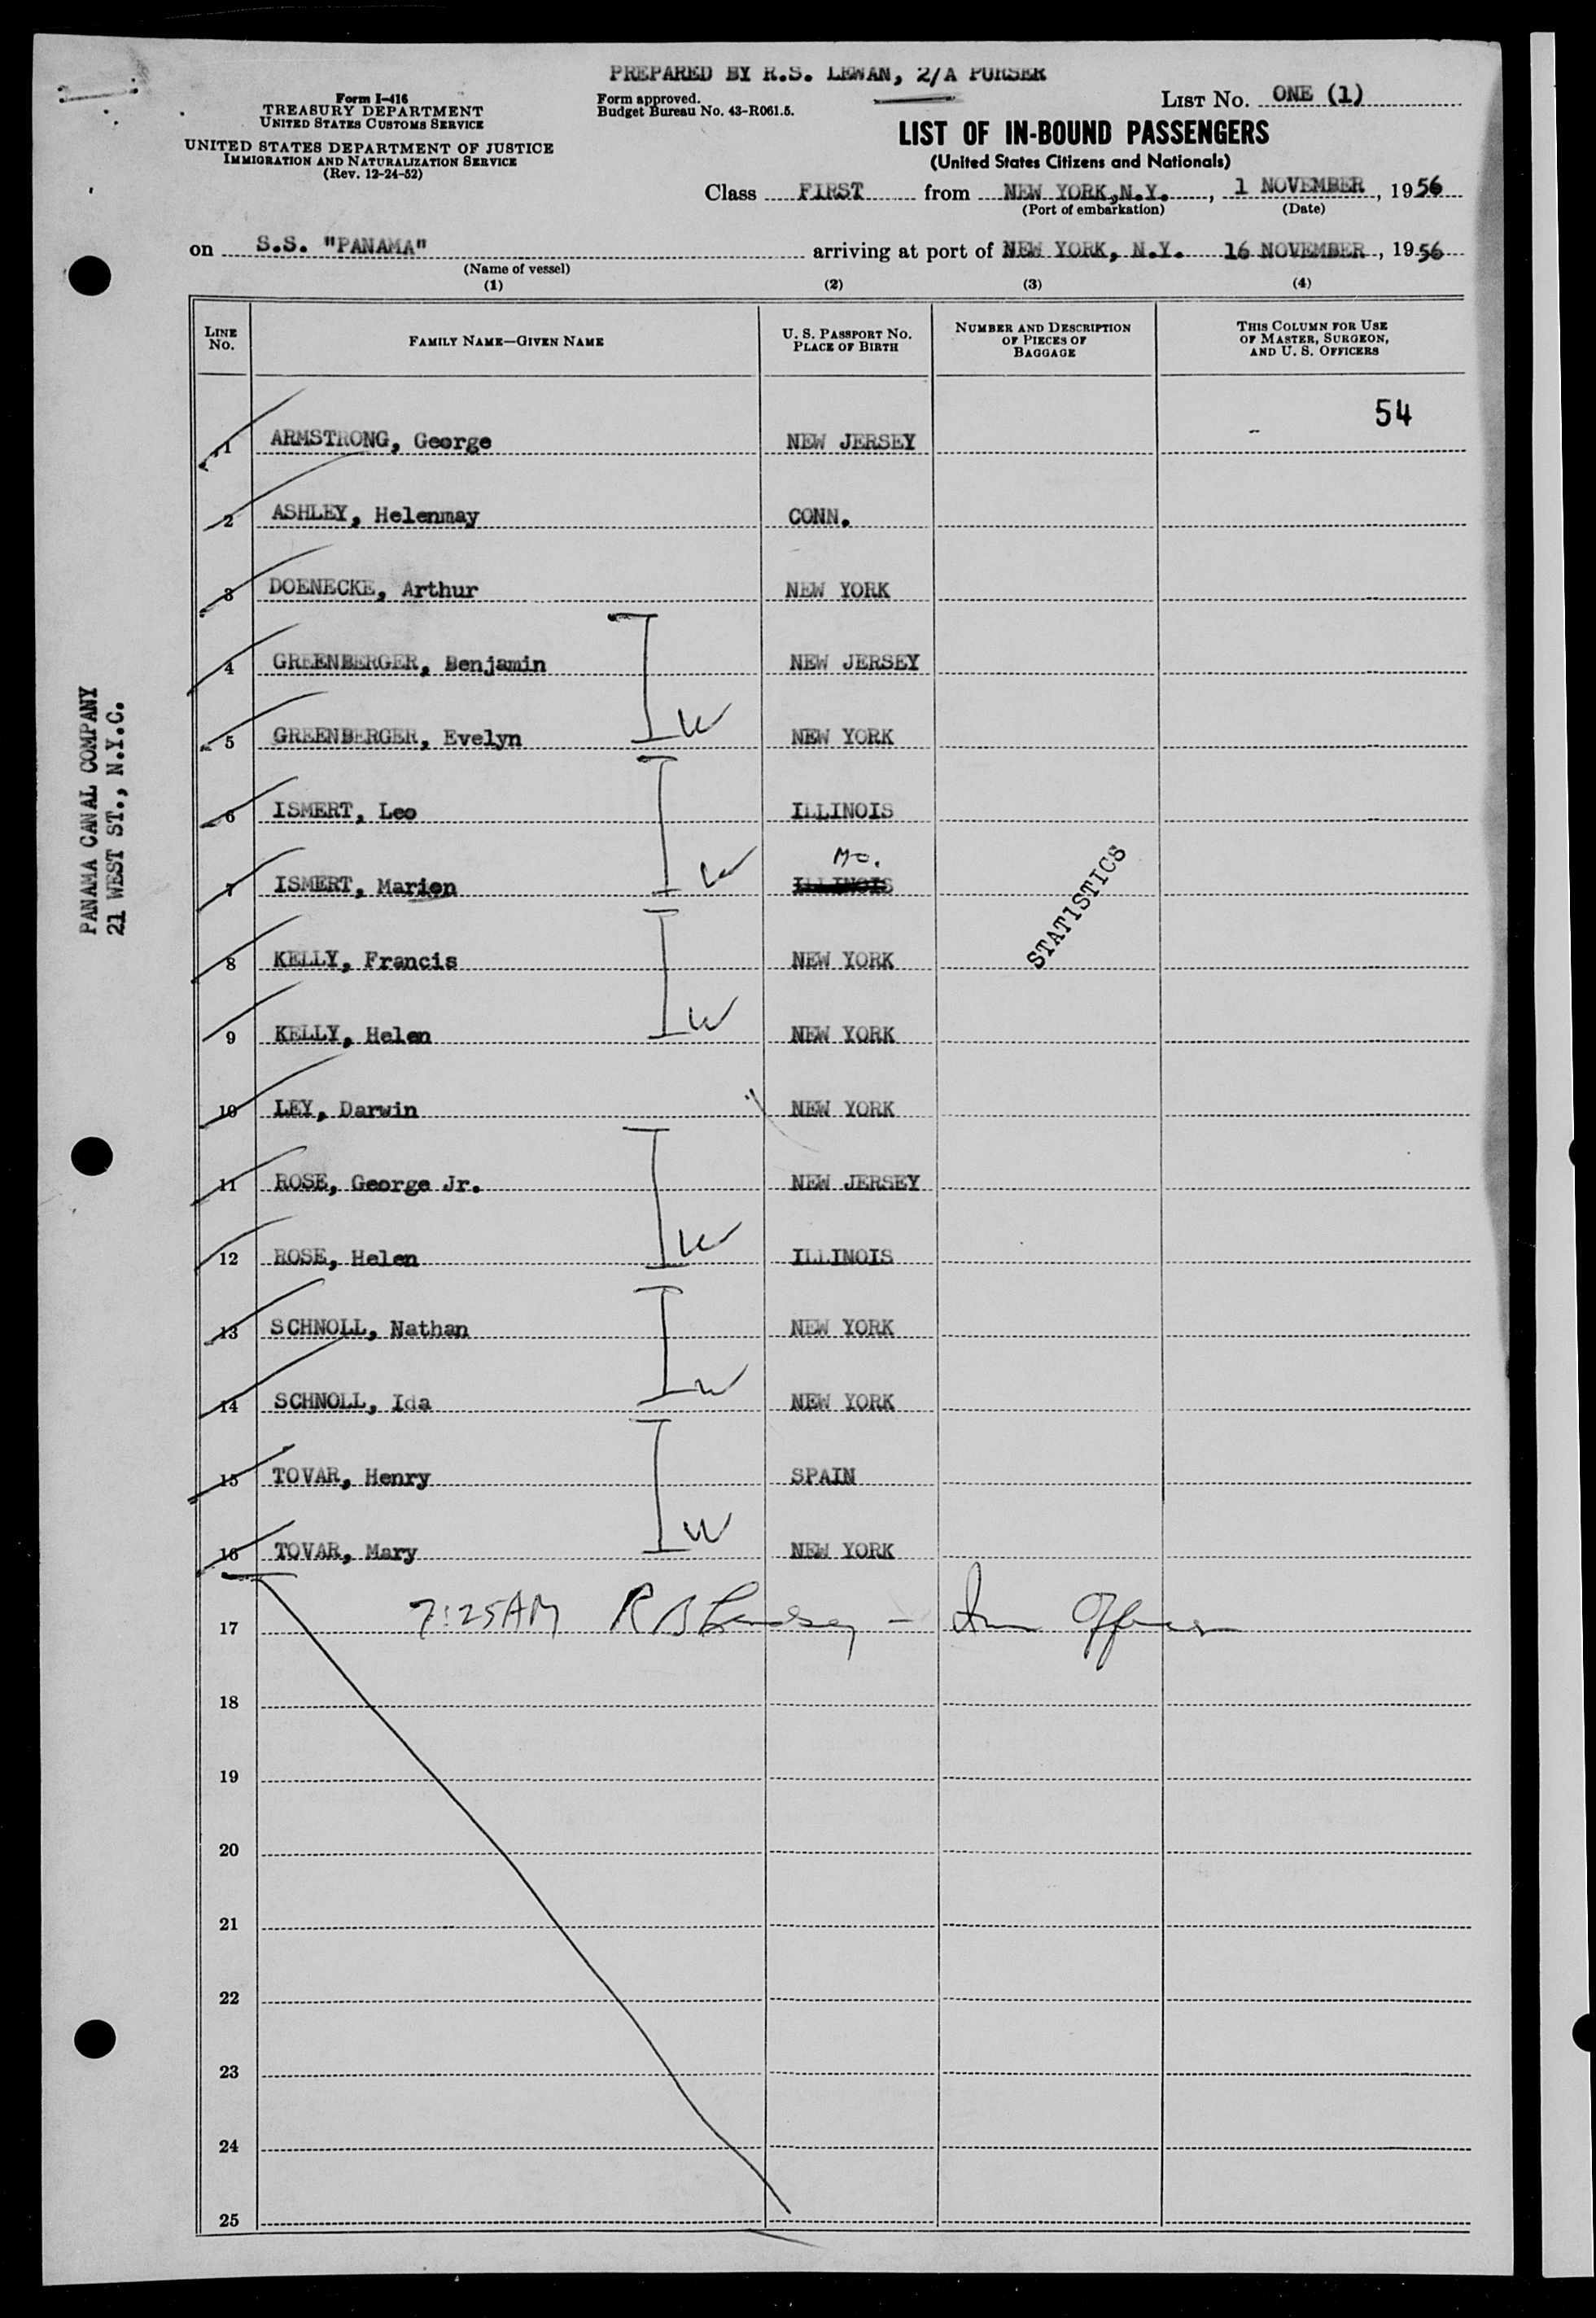 PREPARED BY R.S. LEWAN, 2/A PURSER
Form I-416
TREASURY DEPARTMENT
UNITED STATES CUSTOMS SERVICE
UNITED STATES DEPARTMENT OF JUSTICE
IMMIGRATION AND NATURALIZATION SERVICE
(Rev. 12-24-52)
Form approved.
Budget Bureau No. 43-R061.5.
LIST No. ONE (1)
LIST OF IN-BOUND PASSENGERS
(United States Citizens and Nationals)
Class FIRST from NEW YORK,N.Y., 1 NOVEMBER, 1956
(Port of embarkation) (Date)
on S.S. "PANAMA" arriving at port of NEW YORK, N.Y. 16 NOVEMBER, 1956
(Name of vessel)
(1) (2) (3) (4)
LINE No. FAMILY NAME—GIVEN NAME U. S. PASSPORT NO. PLACE OF BIRTH NUMBER AND DESCRIPTION OF PIECES OF BAGGAGE THIS COLUMN FOR USE OF MASTER, SURGEON, AND U. S. OFFICERS
54
1 ARMSTRONG, George NEW JERSEY
2 ASHLEY, Helenmay CONN.
3 DOENECKE, Arthur NEW YORK
4 GREENBERGER, Benjamin NEW JERSEY
5 GREENBERGER, Evelyn NEW YORK
W
6 ISMERT, Leo ILLINOIS
Mo.
7 ISMERT, Marion ILLINOIS
W
STATISTICS
8 KELLY, Francis NEW YORK
9 KELLY, Helen NEW YORK
W
10 LEY, Darwin NEW YORK
11 ROSE, George Jr. NEW JERSEY
12 ROSE, Helen ILLINOIS
W
13 SCHNOLL, Nathan NEW YORK
14 SCHNOLL, Ida NEW YORK
W
15 TOVAR, Henry SPAIN
16 TOVAR, Mary NEW YORK
W
17 7:25AM R B - Imm Officer
18
19
20
21
22
23
24
25
PANAMA CANAL COMPANY
21 WEST ST., N.Y.C.